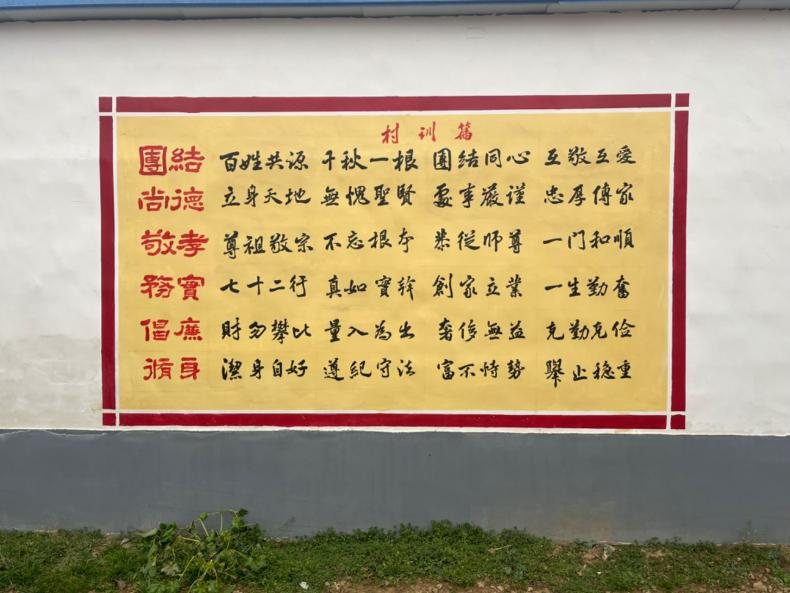 村训篇
團結 百姓共源 千秋一根 團结同心 互敬互爱
尚德 立身天地 無愧聖賢 處事嚴谨 忠厚傳家
敬孝 尊祖敬宗 不忘根本 恭從師尊 一門和順
務實 七十二行 真如實幹 創家立業 一生勤奋
倡廉 財勿攀比 量入為出 奢侈無益 克勤克俭
脩身 潔身自好 遵紀守法 富不恃勢 舉止稳重